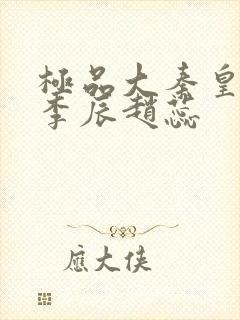 極品大秦皇
李辰趙蕊
應大俠